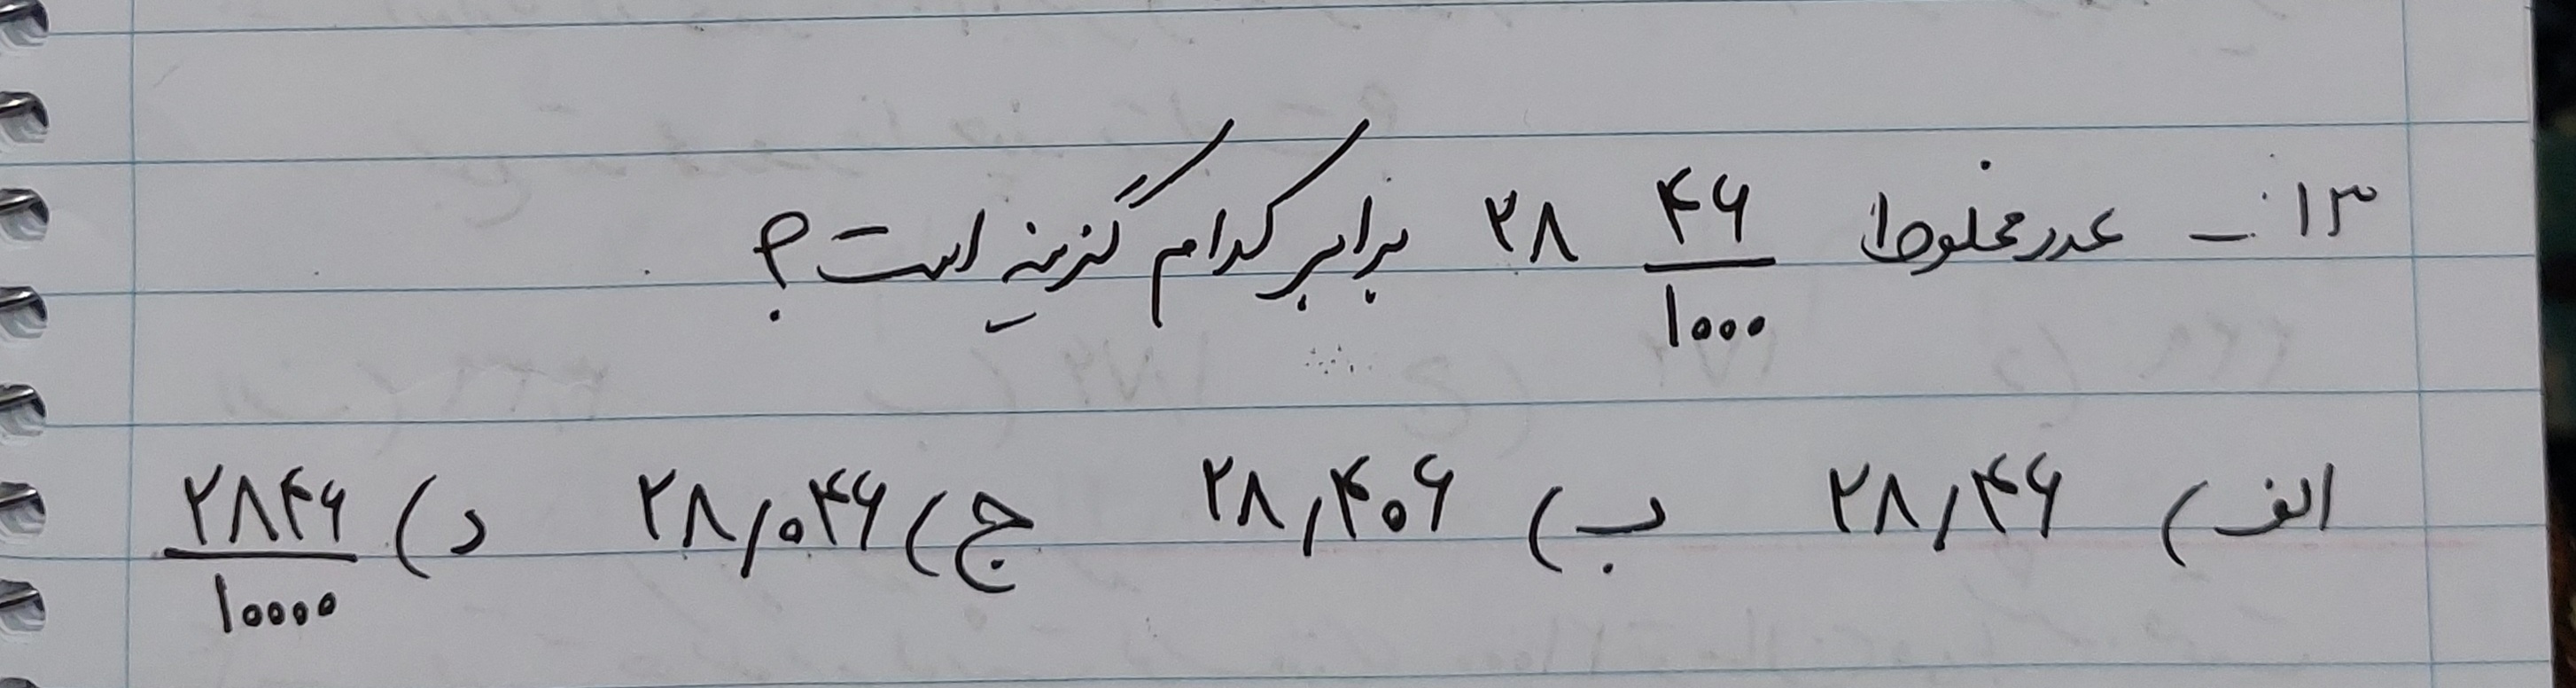 ۱۳ـ عدد مخلوط ۲۸ ۴۶/۱۰۰۰ برابر کدام گزینه است؟
الف) ۲۸٫۴۶ ب) ۲۸٫۴۰۶ ج) ۲۸٫۰۴۶ د) ۲۸۴۶/۱۰۰۰۰